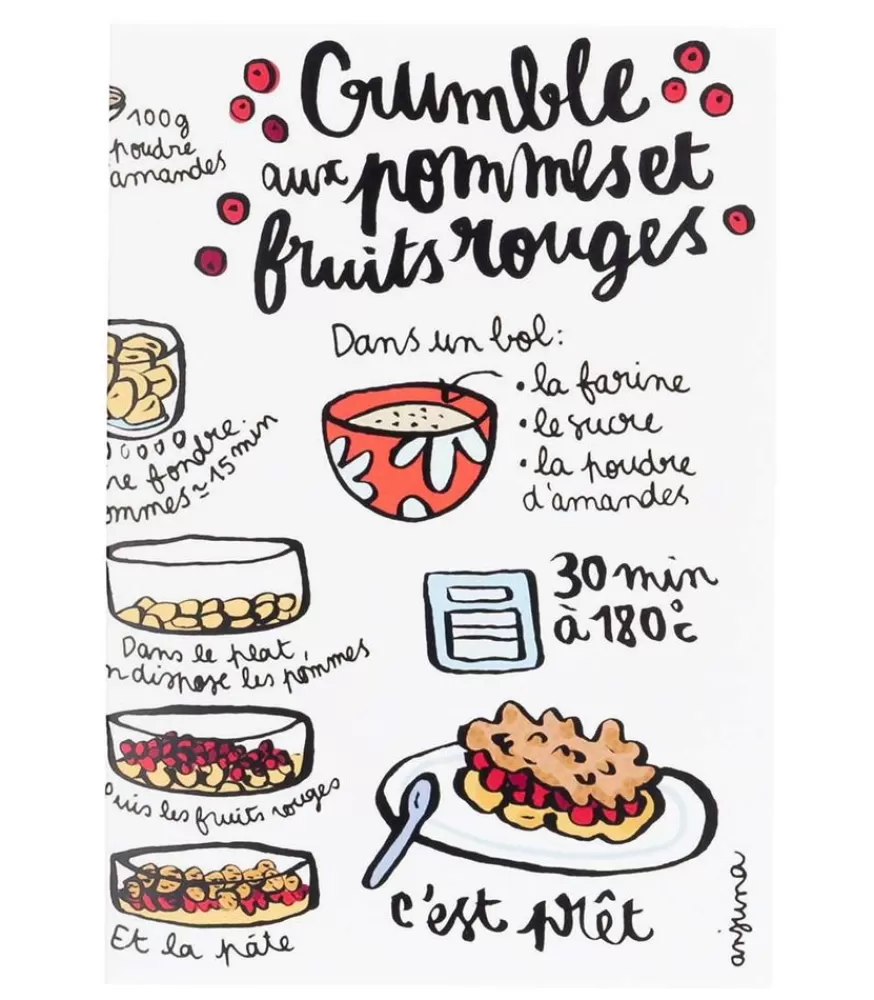 Crumble
aux pommes et
fruits rouges
100g
poudre
amandes
Dans un bol:
• la farine
• le sucre
• la poudre
d'amandes
fondre
≈15 min
30 min
à 180°c
Dans le plat,
dispose les pommes
Puis les fruits rouges
Et la pâte
c'est prêt
anjuna